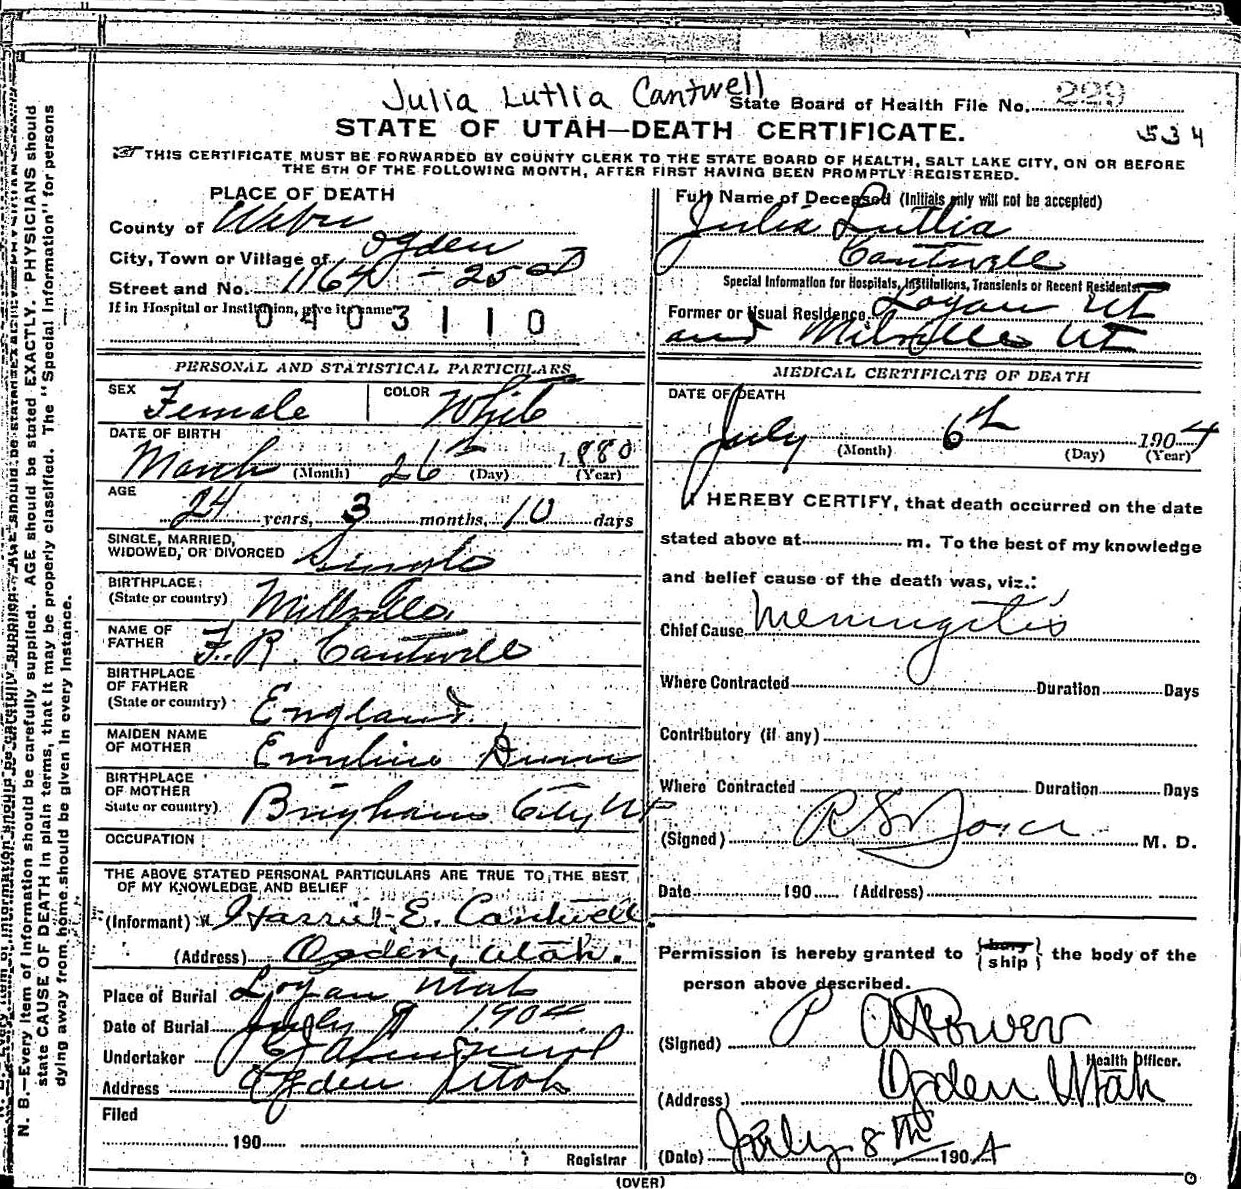 Julia Lutlia Cantwell
State Board of Health File No. 229
STATE OF UTAH—DEATH CERTIFICATE.
534
THIS CERTIFICATE MUST BE FORWARDED BY COUNTY CLERK TO THE STATE BOARD OF HEALTH, SALT LAKE CITY, ON OR BEFORE
THE 5TH OF THE FOLLOWING MONTH, AFTER FIRST HAVING BEEN PROMPTLY REGISTERED.
PLACE OF DEATH
County of Weber
City, Town or Village of Ogden
Street and No. 1164 - 25
If in Hospital or Institution, give its name
0403110
PERSONAL AND STATISTICAL PARTICULARS
SEX Female COLOR White
DATE OF BIRTH
March (Month) 26th (Day) 1880 (Year)
AGE
24 years, 3 months, 10 days
SINGLE, MARRIED,
WIDOWED, OR DIVORCED Single
BIRTHPLACE:
(State or country) Millville
NAME OF
FATHER F. R. Cantwell
BIRTHPLACE
OF FATHER
(State or country) England
MAIDEN NAME
OF MOTHER Emeline Dunn
BIRTHPLACE
OF MOTHER
State or country) Brigham City Ut
OCCUPATION
THE ABOVE STATED PERSONAL PARTICULARS ARE TRUE TO THE BEST
OF MY KNOWLEDGE AND BELIEF
(Informant) Harriet E. Cantwell
(Address) Ogden, Utah.
Place of Burial Logan Utah
Date of Burial July 1904
Undertaker
Address Ogden Utah
Filed
190
Registrar
Full Name of Deceased (Initials only will not be accepted)
Julia Lutlia
Cantwell
Special Information for Hospitals, Institutions, Transients or Recent Residents
Former or Usual Residence Logan UT
and Millville UT
MEDICAL CERTIFICATE OF DEATH
DATE OF DEATH
July (Month) 6th (Day) 1904 (Year)
I HEREBY CERTIFY, that death occurred on the date
stated above at m. To the best of my knowledge
and belief cause of the death was, viz.:
Chief Cause Meningitis
Where Contracted Duration Days
Contributory (if any)
Where Contracted Duration Days
(Signed) M. D.
Date 190 (Address)
Permission is hereby granted to {bury ship} the body of the
person above described.
(Signed)
Health Officer.
(Address) Ogden Utah
(Date) July 8th 1904
(OVER)
N. B.—Every item of information should be carefully supplied. AGE should be stated EXACTLY. PHYSICIANS should
state CAUSE OF DEATH in plain terms, that it may be properly classified. The "Special Information" for persons
dying away from home should be given in every instance.